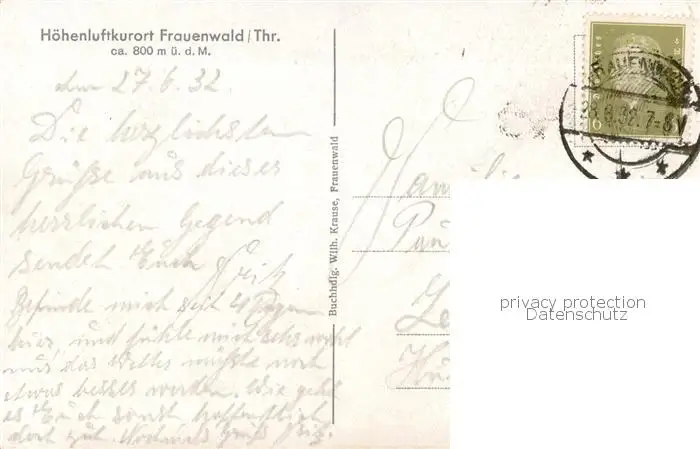 Höhenluftkurort Frauenwald/Thr.
ca. 800 m ü. d. M.
den 27.6.32.
Die herzlichsten
Grüße aus dieser
herrlichen Gegend
sendet Euch
Fritz
Befinde mich seit Tagen
hier, und fühle mich sehr wohl
nur das Wetter müßte noch
etwas besser werden. Wie geht
es Euch sonst hoffentlich
doch gut. Nochmals Gruß Fritz.
Buchhdlg. Wilh. Krause, Frauenwald
FRAUENWALD
6.32.7-8V
Familie
privacy protection
Datenschutz